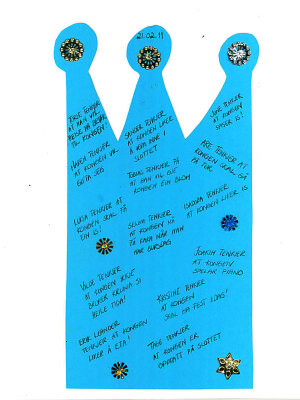 21.02.11
TERJE TENKJER
AT HAN VIL
REISE PÅ
TIL KONGEN
SANDER TENKJER
AT KONGEN
Å
SLOTTET
JUNE TENKJER
AT KONGEN
SPISER IS!
HANNA TENKJER
AT KONGEN VIL
GIFTA SEG
TENKJER PÅ
AT HAN VIL GJE
KONGEN EIN BLOM
ARE TENKJER AT
KONGEN SKAL GÅ
PÅ TUR
LUCIA TENKJER AT
KONGEN SKAL FÅ
EIN
SELMA TENKJER
AT KONGEN VIL
FÅ KAKA NÅR HAN
HAR BURSDAG
ISADORA TENKJER
AT KONGEN LIKER IS
JOAKIM TENKJER
AT KONGEN
SPELAR PIANO
VILJE TENKJER
AT KONGEN IKKJE
BRUKER KRUNA SI
HEILE TIDA!
KRISTINE TENKJER
AT KONGEN
SKAL HA FEST IDAG!
ERIK LEANDER
TENKJER AT KONGEN
LIKER Å ETA!
TAGE TENKJER
AT KONGEN ER
OPPTATT PÅ SLOTTET